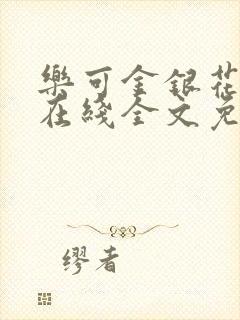 樂可金銀花
在綫全文免
缪者